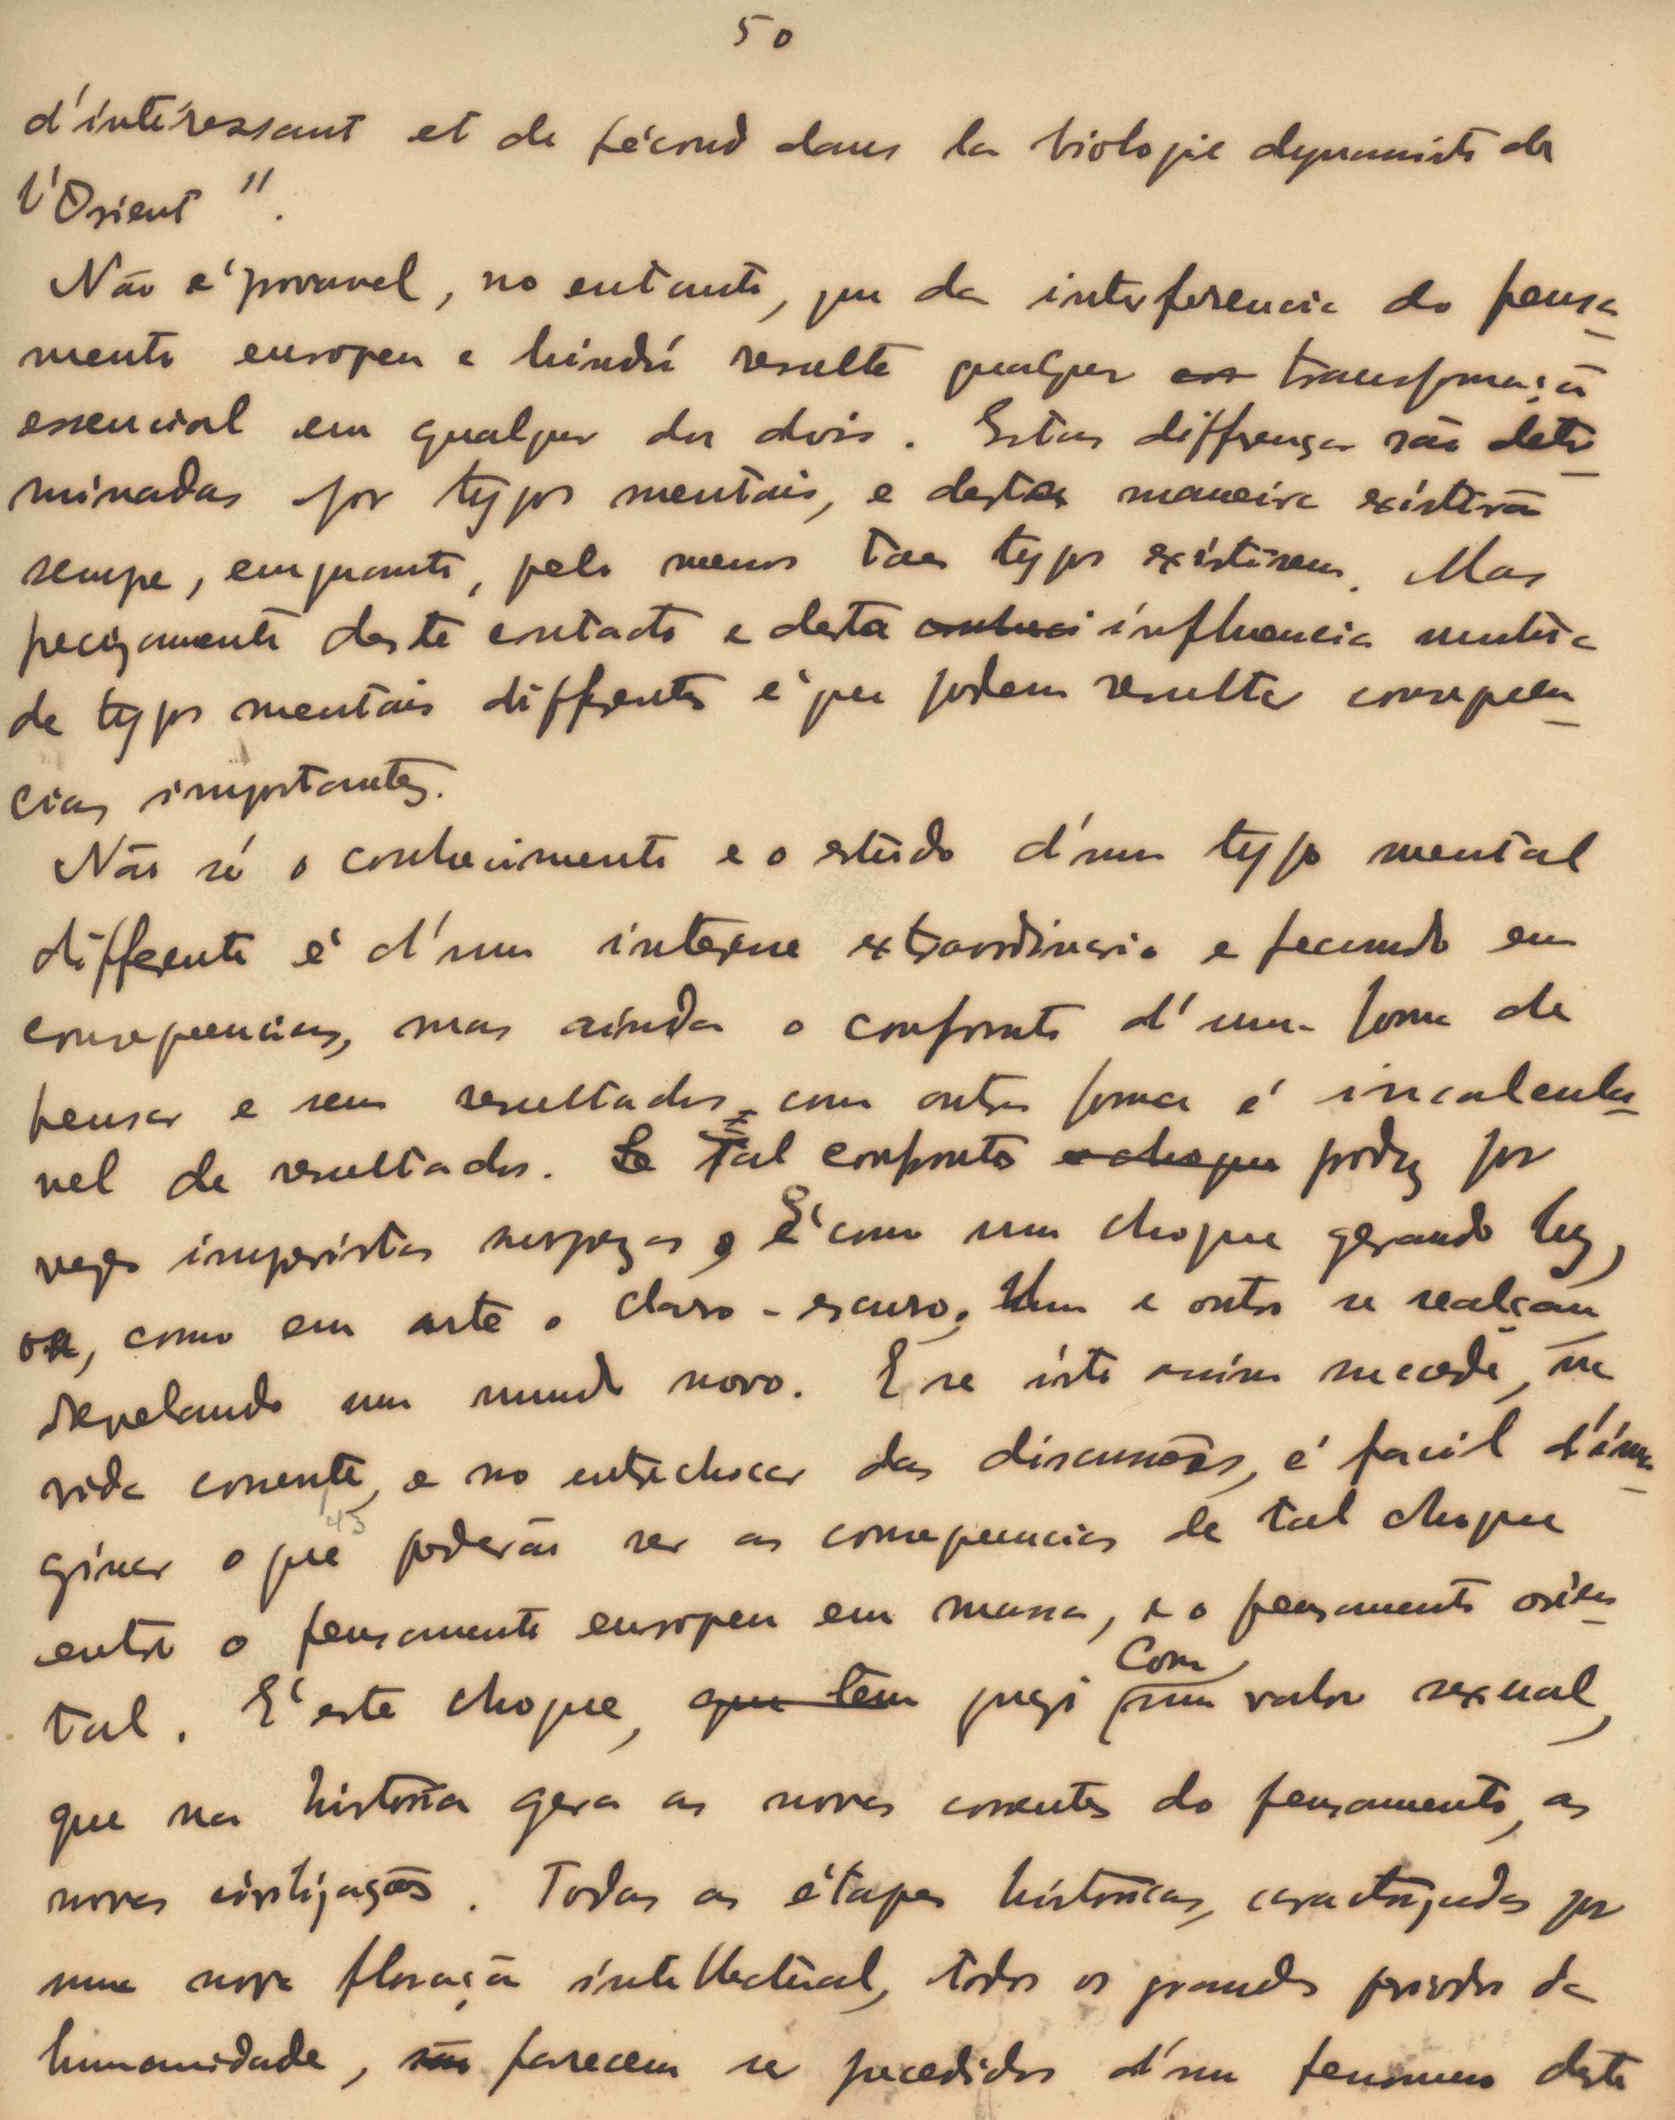 50
d'intéressant et de fécond dans la biologie dynamiste de
l'Orient".
Não é provavel, no entanto, que da interferencia do pensa-
mento europeu e hindú resulte qualquer transformação
essencial em qualquer dos dois. Estas differenças são deter-
minadas por typos mentais, e desta maneira existirão
sempre, emquanto, pelo menos taes typos existirem. Mas
precizamente deste contacto e desta influencia mutua
de typos mentais differentes é que podem resultar consequen-
cias importantes.
Não só o conhecimento e o estudo d'um typo mental
differente é d'um interesse extraordinario e fecundo em
consequencias, mas ainda o confronto d'uma forma de
pensar e seus resultados com outra forma é incalcula-
vel de resultados. Tal confronto produz por
vezes imprevistas surprezas. É como um choque gerando luz,
ou, como em arte o claro-escuro. Um e outro se realçam
revelando um mundo novo. E se isto assim succede, na
vida corrente, e no entrechocar das discussões, é facil d'ima-
45
ginar o que poderão ser as consequencias de tal choque
entre o pensamento europeu em massa, e o pensamento orien-
tal. É este choque, que tem quasi com um valor sexual,
que na historia gera as novas correntes do pensamento, as
novas civilizações. Todas as étapes historicas, caracterizadas por
uma nova floração intellectual, todos os grandes periodos da
humanidade, são parecem ser precedidos d'um fenomeno deste